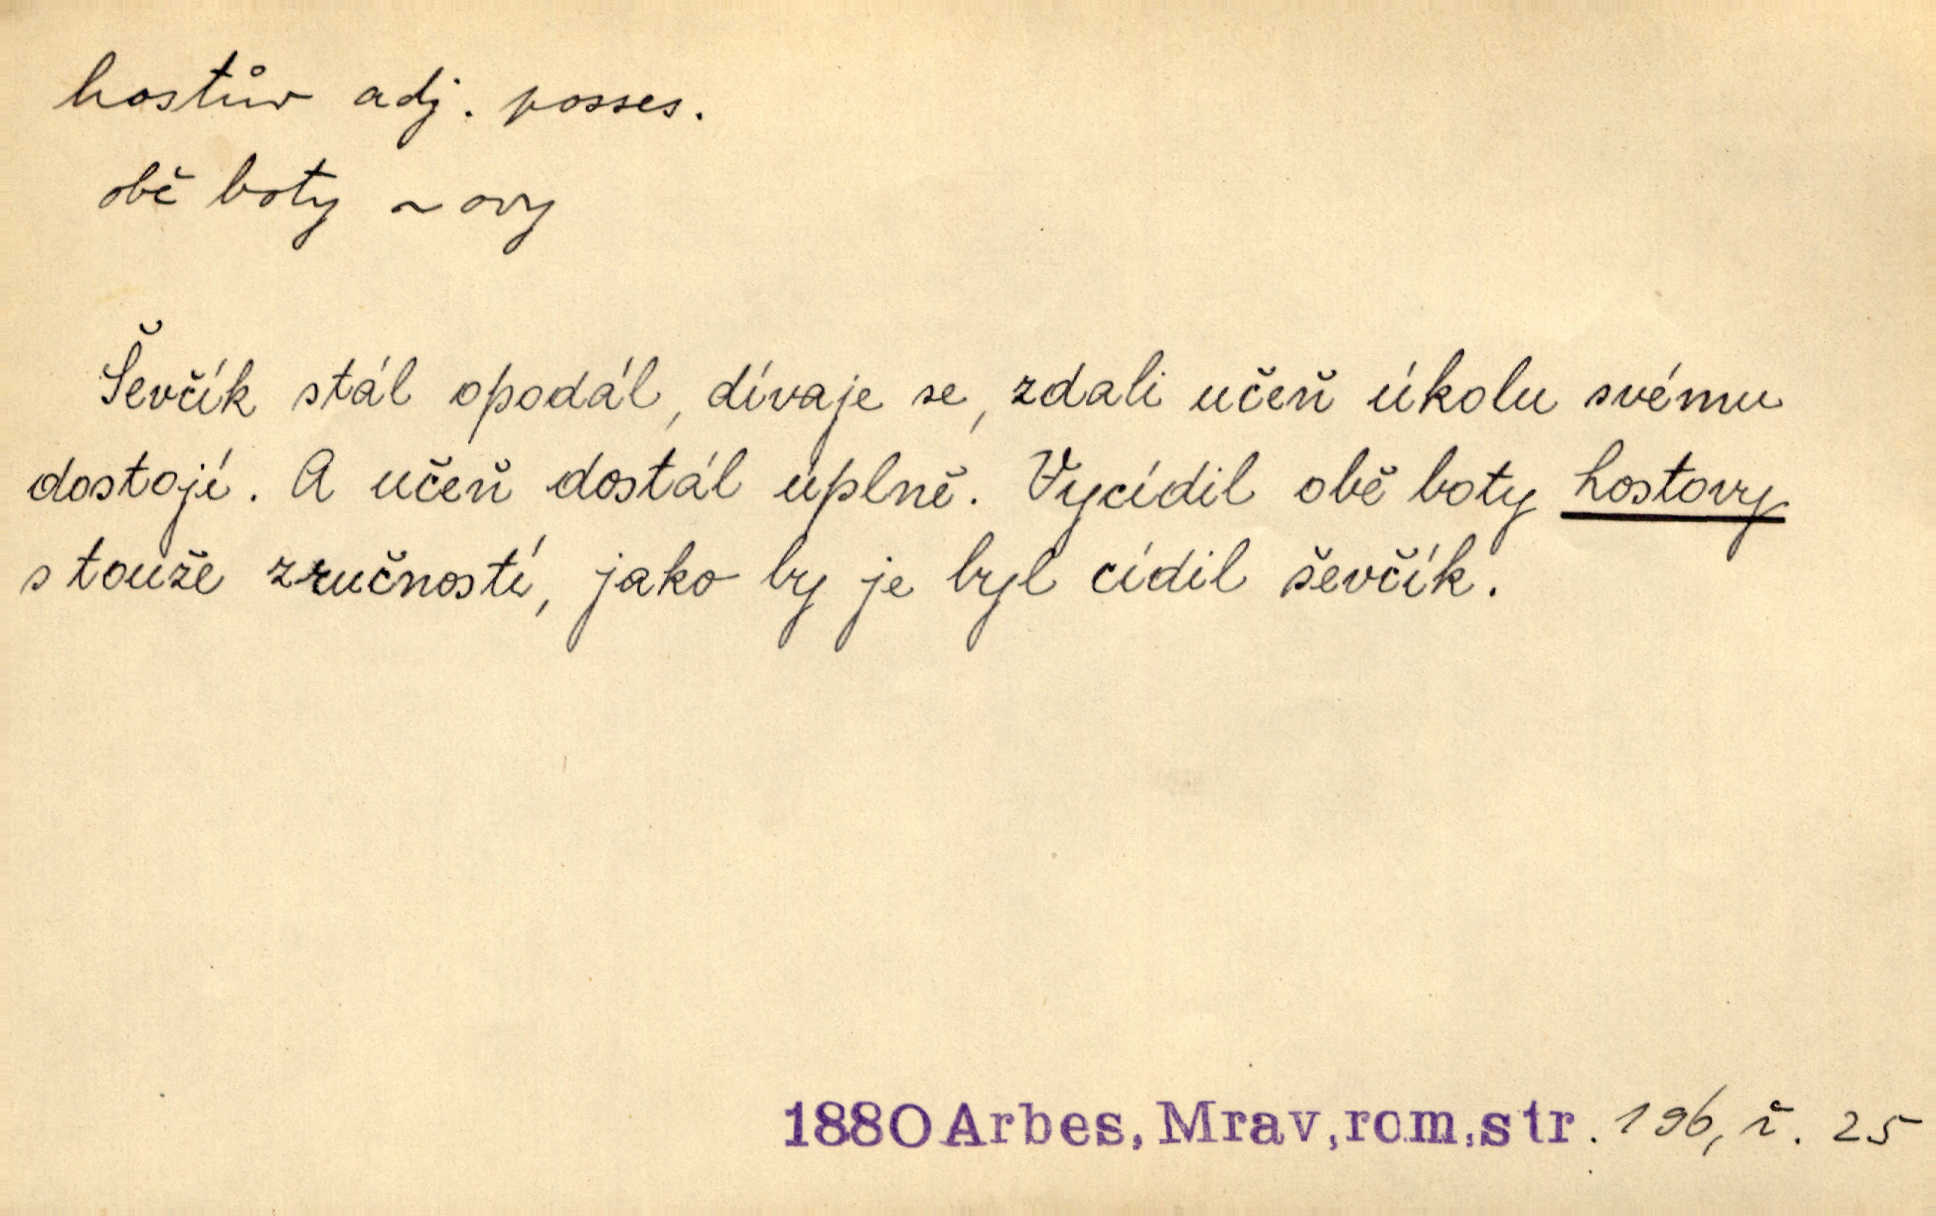 hostův adj. posses.
obě boty ~ ovy
Ševčík stál opodál, dívaje se, zdali učeň úkolu svému
dostojí. A učeň dostál úplně. Vycídil obě boty hostovy
s touže zručností, jako by je byl cídil ševčík.
1880 Arbes, Mrav, rom, str. 196, ř. 25